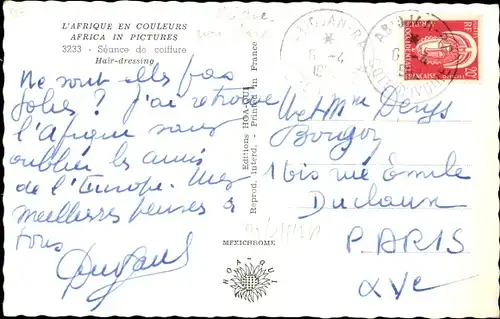 L'AFRIQUE EN COULEURS
AFRICA IN PICTURES
3233 - Séance de coiffure
Hair-dressing
Ne sont elles pas
jolies? J'ai retrouvé
l'Afrique sans
oublier les amis
de l'Europe. Mes
meilleures pensées à
tous
Editions HOA-QUI
Reprod. interd. - Printed in France
MEXICHROME
HOA-QUI
ABIDJAN-RP
6 -4
ABIDJAN-RP
6 -4
COTE D'IVOIRE
RF
20F
Mr et Mme Denys
1 bis rue Émile
Duclaux
PARIS
XVe